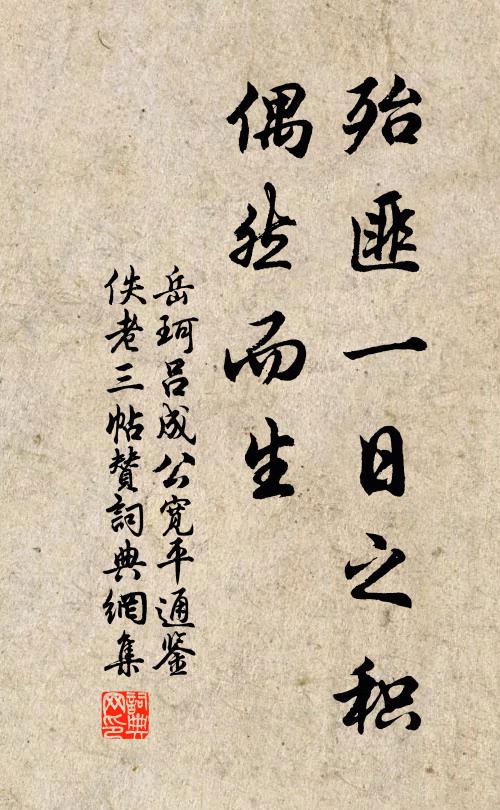 殆匪一日之积
偶然而生
岳珂吕成公寛平通鉴
佚老三帖赞詞典網集
詞典
网印